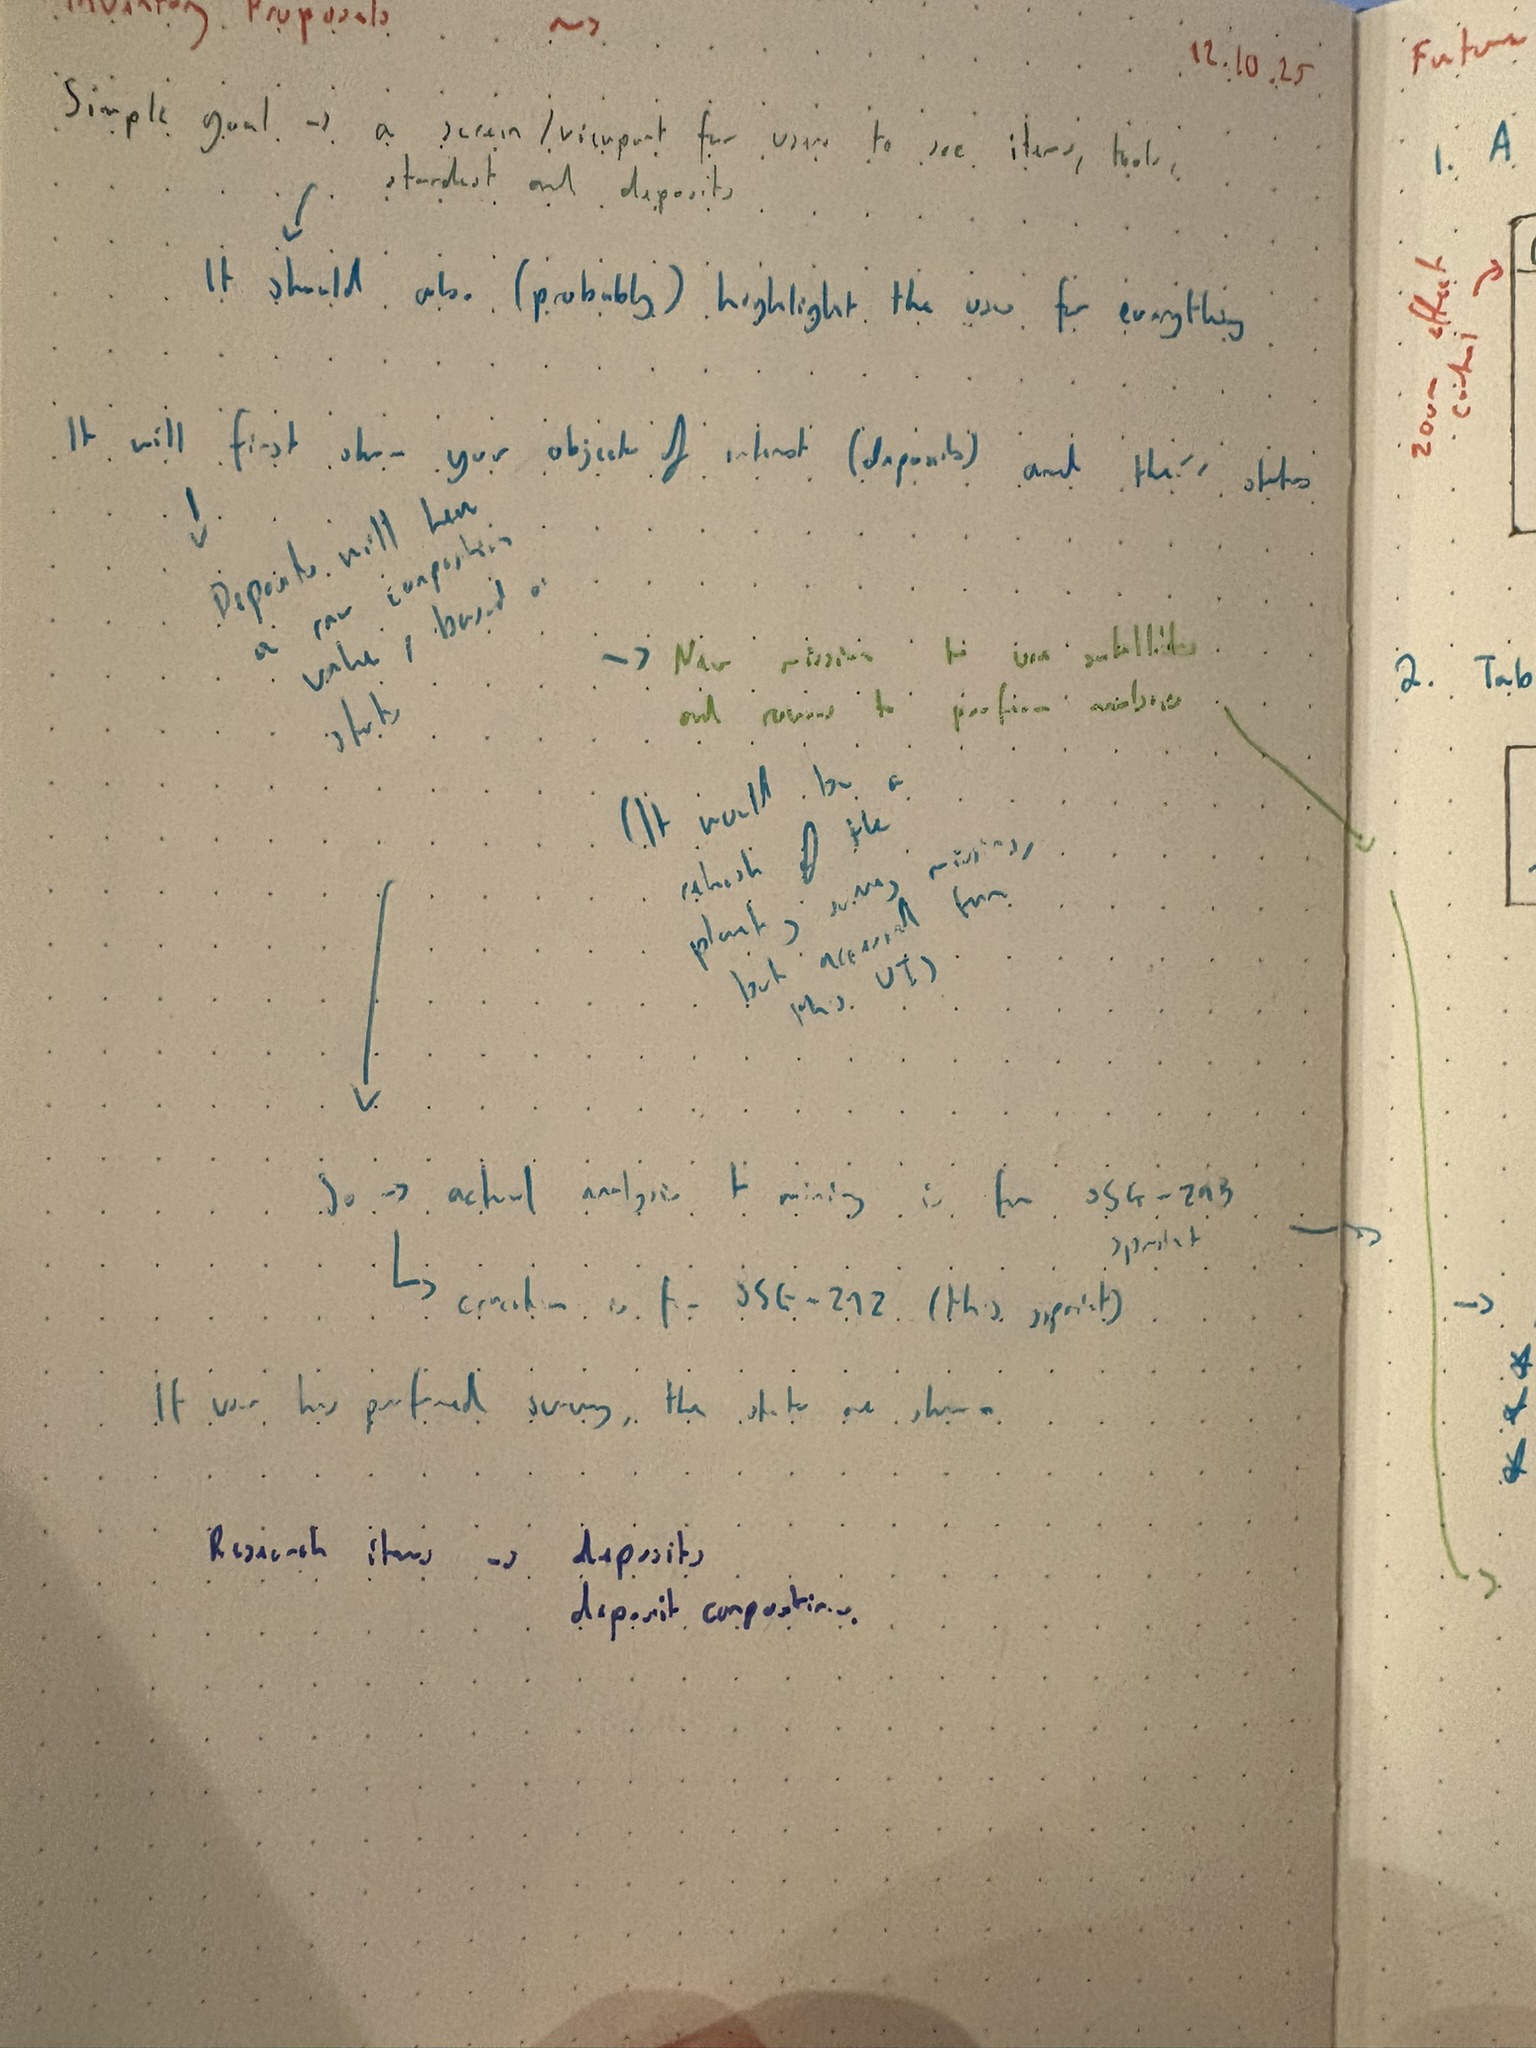 Inventory Proposals ~>
12.10.25
Simple goal -> a screen/viewport for users to see items, tools,
stardust and deposits
It should also (probably) highlight the uses for everything
It will first show your objects of interest (deposits) and their states
Deposits will have
a raw composition
value, based on
stats
-> New mission to use satellites
and rovers to perform analyses
(It would be a
rehash of the
planet survey missions,
but accessed from
this UI)
So -> actual analysis & mining is for SSG-293
sprint
creation is for SSG-292 (this sprint)
If user has performed survey, the stats are shown
Research items -> deposits
deposit compositions.
Future
1. A
zoom effect
control
2. Tab
->